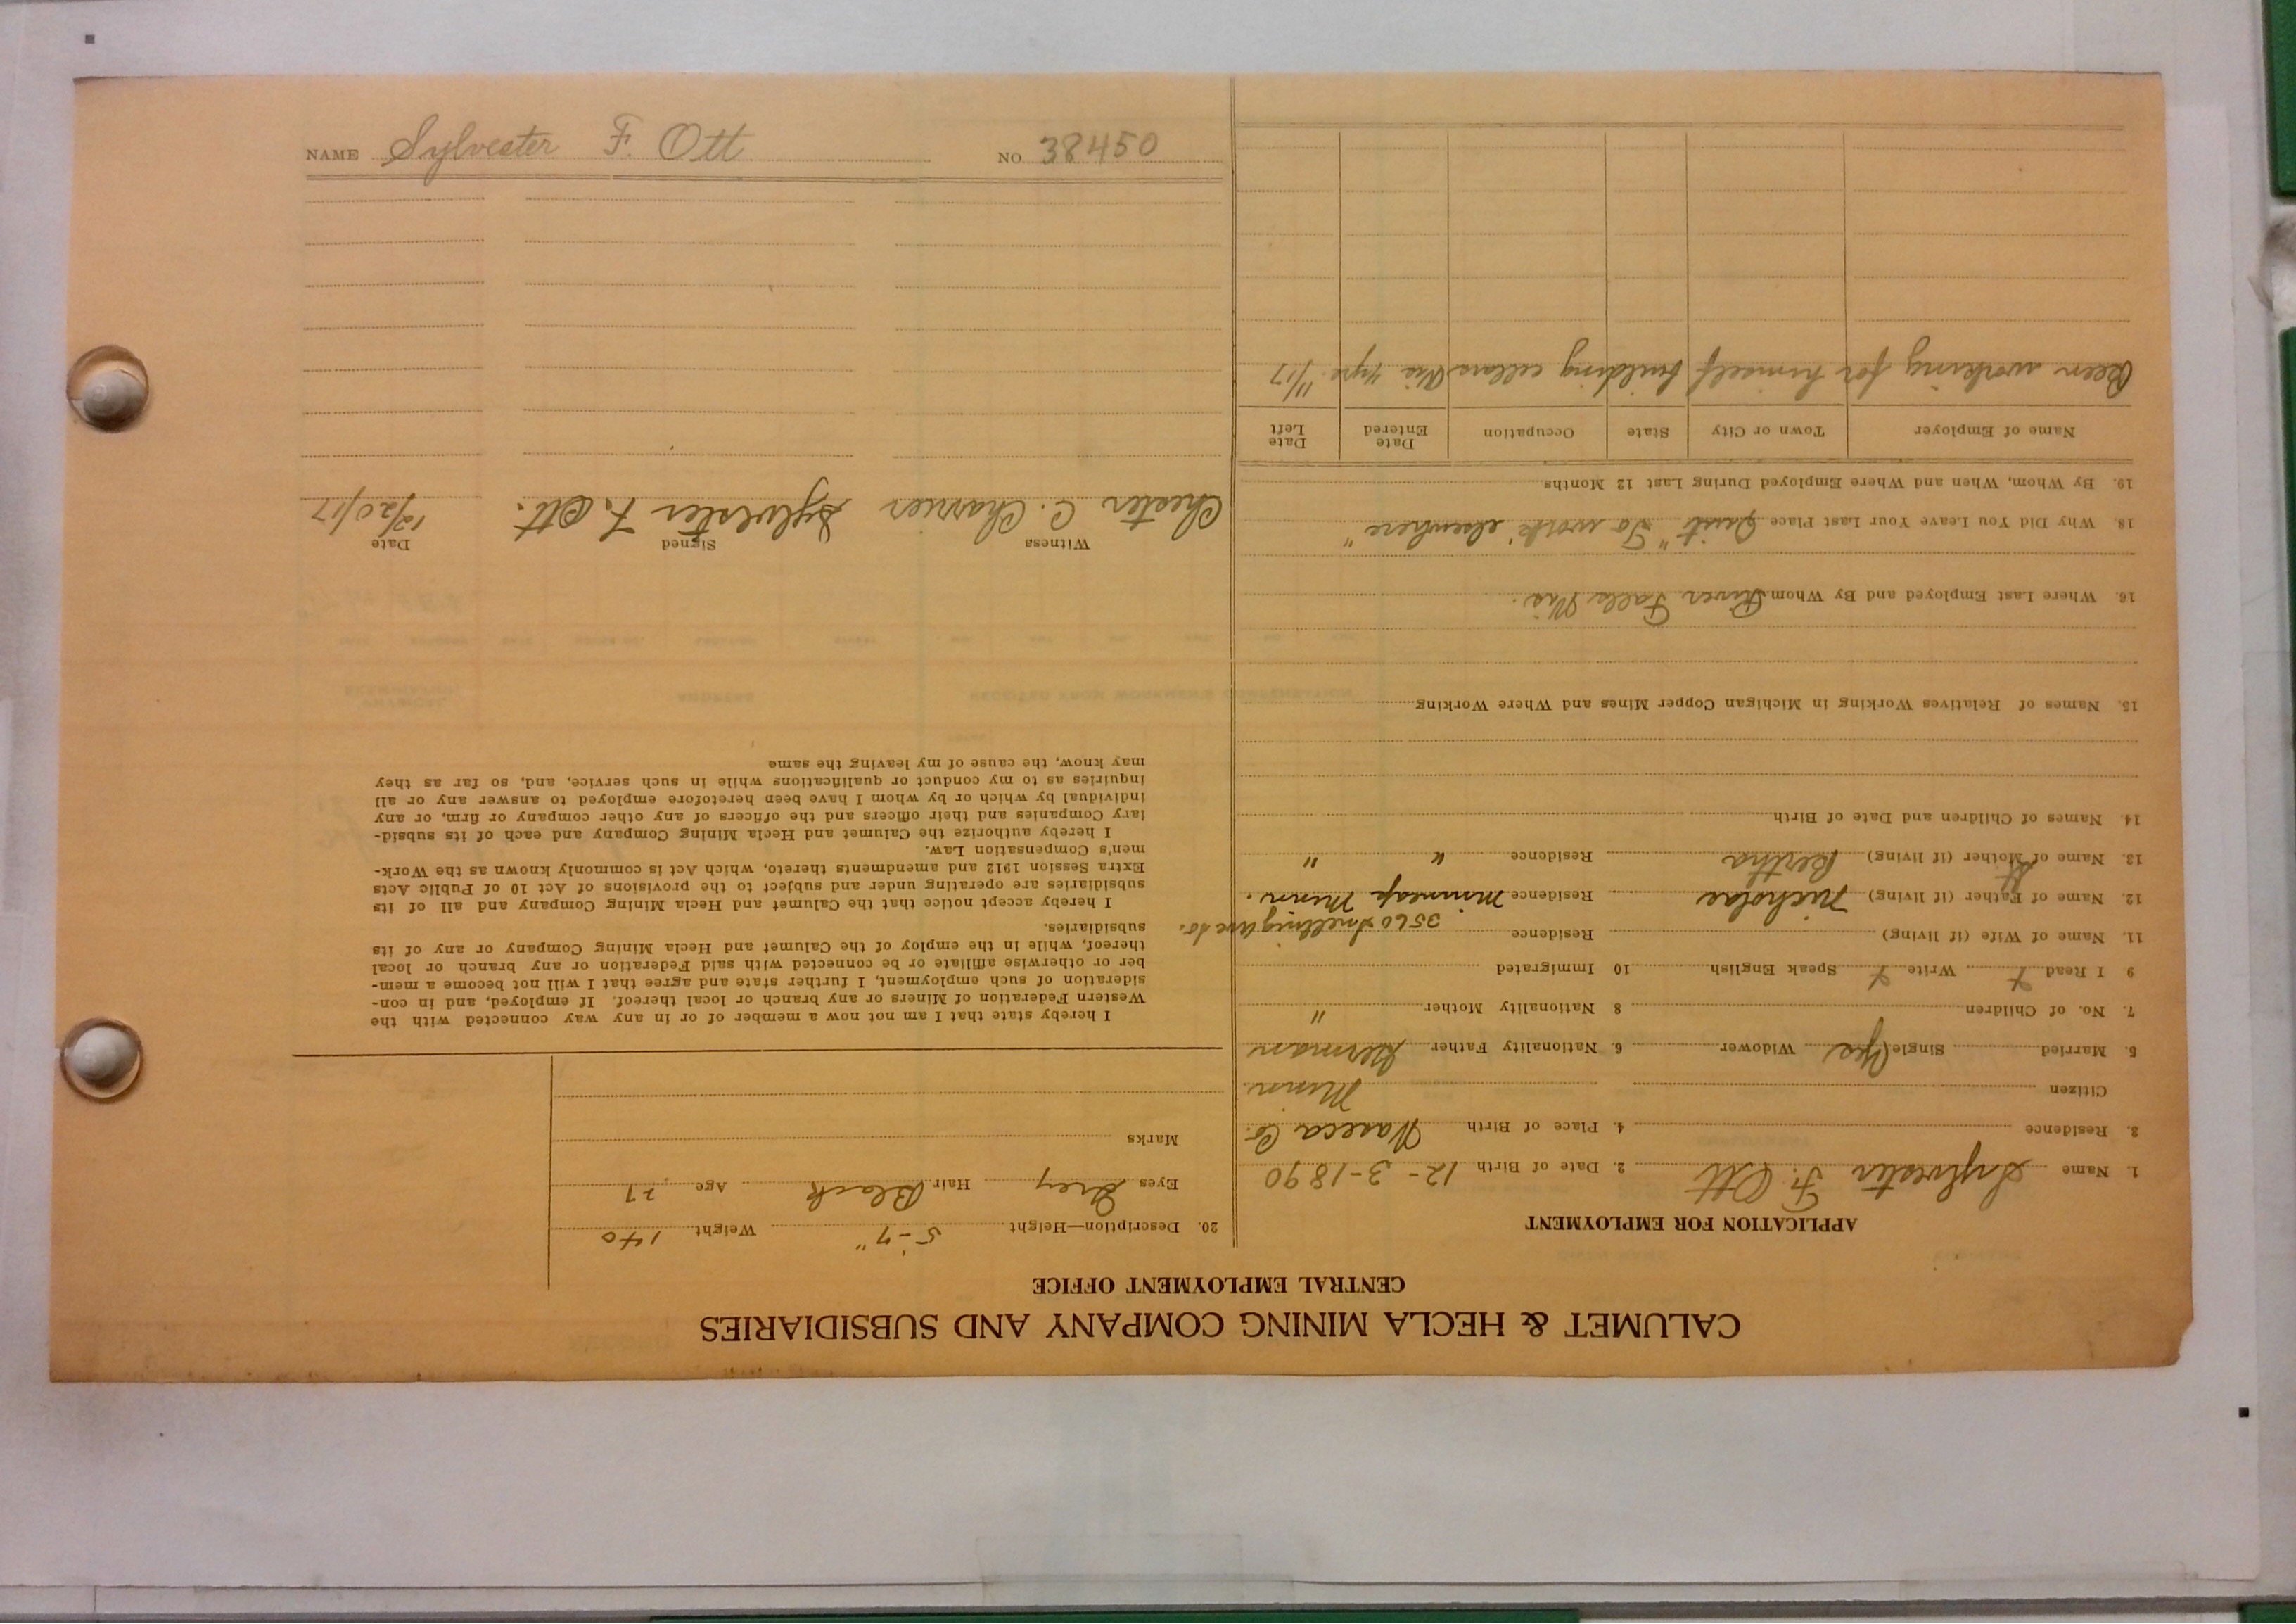 CALUMET & HECLA MINING COMPANY AND SUBSIDIARIES
CENTRAL EMPLOYMENT OFFICE
APPLICATION FOR EMPLOYMENT
1. Name Sylvester F. Ott 2. Date of Birth 12-3-1890
3. Residence 4. Place of Birth Waseca Co.
Citizen Minn.
5. Married Single Yes Widower 6. Nationality Father German
7. No. of Children 8 Nationality Mother "
9 I Read Write Speak English 10 Immigrated
11. Name of Wife (if living) Residence 3560 Snelling ave so.
12. Name of Father (if living) Nicholas Residence Minneap Minn.
13. Name of Mother (if living) Bertha Residence " "
14. Names of Children and Date of Birth
15. Names of Relatives Working in Michigan Copper Mines and Where Working
16. Where Last Employed and By Whom River Falls Wis.
18. Why Did You Leave Your Last Place Quit "To work elsewhere"
19. By Whom, When and Where Employed During Last 12 Months
Name of Employer Town or City State Occupation Date Entered Date Left
Been working for himself building cellars Wis 4yrs. 11/17
20. Description—Height 5-7" Weight 140
Eyes Grey Hair Black Age 27
Marks
I hereby state that I am not now a member of or in any way connected with the
Western Federation of Miners or any branch or local thereof. If employed, and in con-
sideration of such employment, I further state and agree that I will not become a mem-
ber or otherwise affiliate or be connected with said Federation or any branch or local
thereof, while in the employ of the Calumet and Hecla Mining Company or any of its
subsidiaries.
I hereby accept notice that the Calumet and Hecla Mining Company and all of its
subsidiaries are operating under and subject to the provisions of Act 10 of Public Acts
Extra Session 1912 and amendments thereto, which Act is commonly known as the Work-
men's Compensation Law.
I hereby authorize the Calumet and Hecla Mining Company and each of its subsid-
iary Companies and their officers and the officers of any other company or firm, or any
individual by which or by whom I have been heretofore employed to answer any or all
inquiries as to my conduct or qualifications while in such service, and, so far as they
may know, the cause of my leaving the same
Witness Signed Date
Chester C. Charrier Sylvester F. Ott. 12/20/17
NAME Sylvester F. Ott NO. 38450